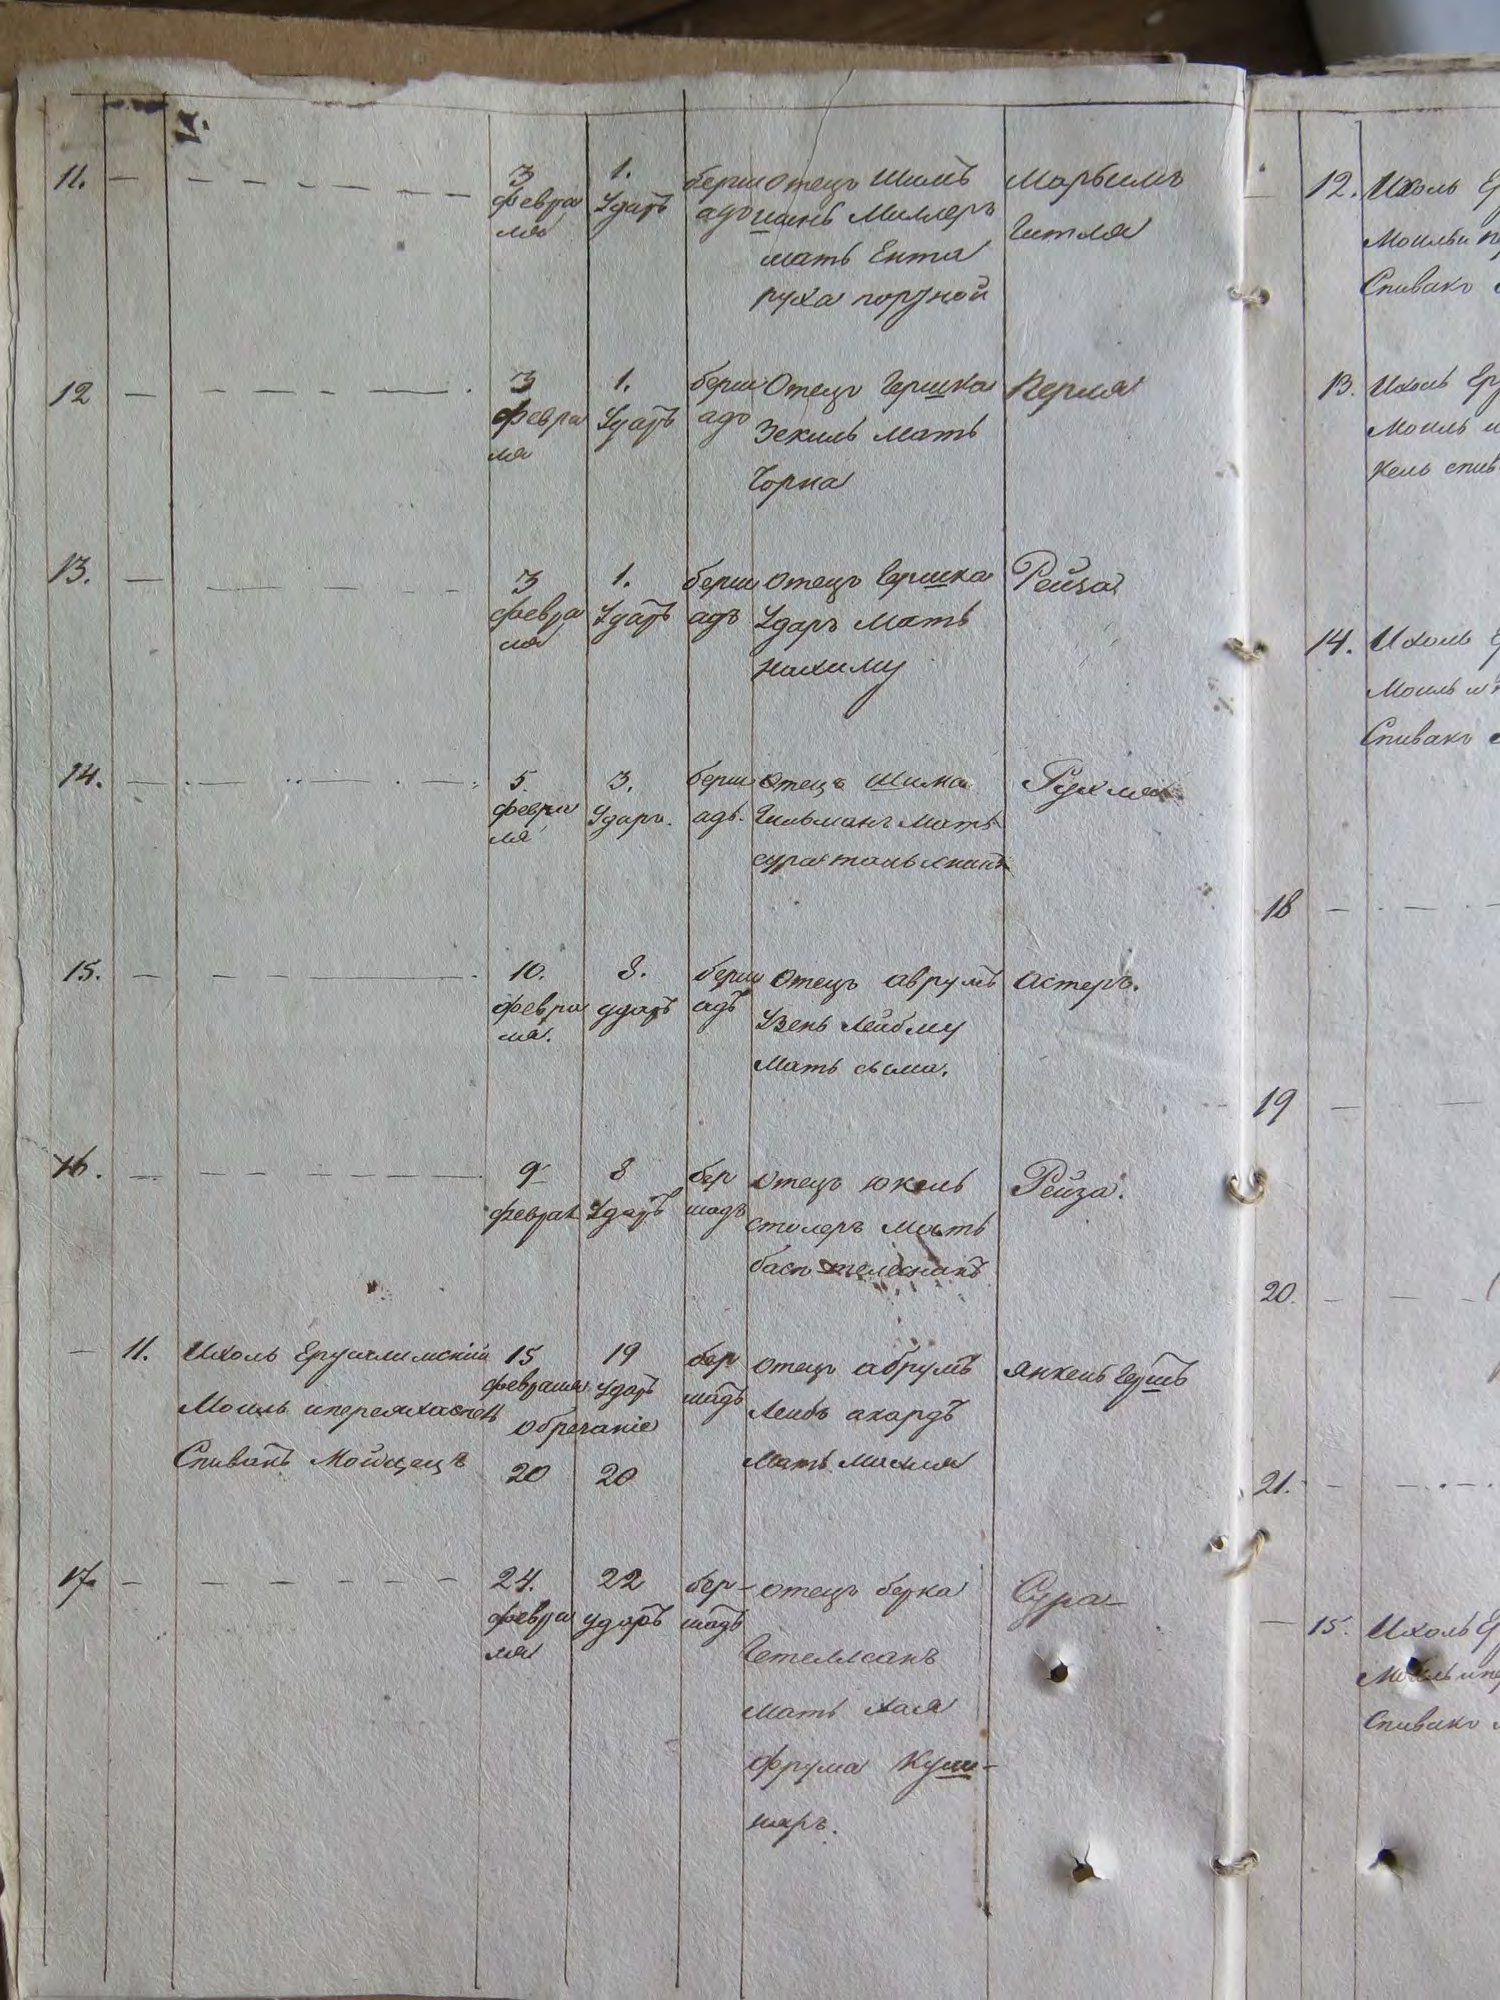 11.
3
февра
ля
1.
Удатъ
берш
адъ
отецъ Шимъ
шинъ Миллеръ
мать Ента
руха портной
Марьимъ
Гитля
12
3
февра
ля
1.
Удатъ
берш
адъ
Отецъ Гершка
Зекиль Мать
Чорна
Перля
13.
3
февра
ля
1.
Удатъ
берш
адъ
отецъ Гершка
Ударъ Мать
Нахиму
Рейза
14.
5.
февра
ля
3.
Ударъ.
берш
адъ.
отецъ Шима
Гильманъ Мать
сура
Рухля
15.
10.
февра
ля.
8.
удатъ
берш
адъ
отецъ аврумъ
Узень Лейбму
Мать сыма.
астеръ.
16.
9
феврал
8
Удатъ
бер
шадъ
отецъ юкель
столеръ Мать
бася
Рейза.
11.
Ихоль Ерусалимскiй
Моиль
Спивакъ
15
февраля
19
Удатъ
обрезанiе
20 20
бер
шадъ
отецъ абрумъ
Лейбъ ахардъ
Мать Махля
янкель Гершъ
17.
24.
февра
ля
22
ударъ
бер-
шадъ
отецъ берка
Гетеллсанъ
Мать хая
фрума Куш-
наръ.
Сура
12. Ихоль
Моильи
Спивакъ
13. Ихоль
Моиль
14. Ихоль
Моиль
Спивакъ
18
19
20.
21.
15. Ихоль
Моиль
Спивакъ